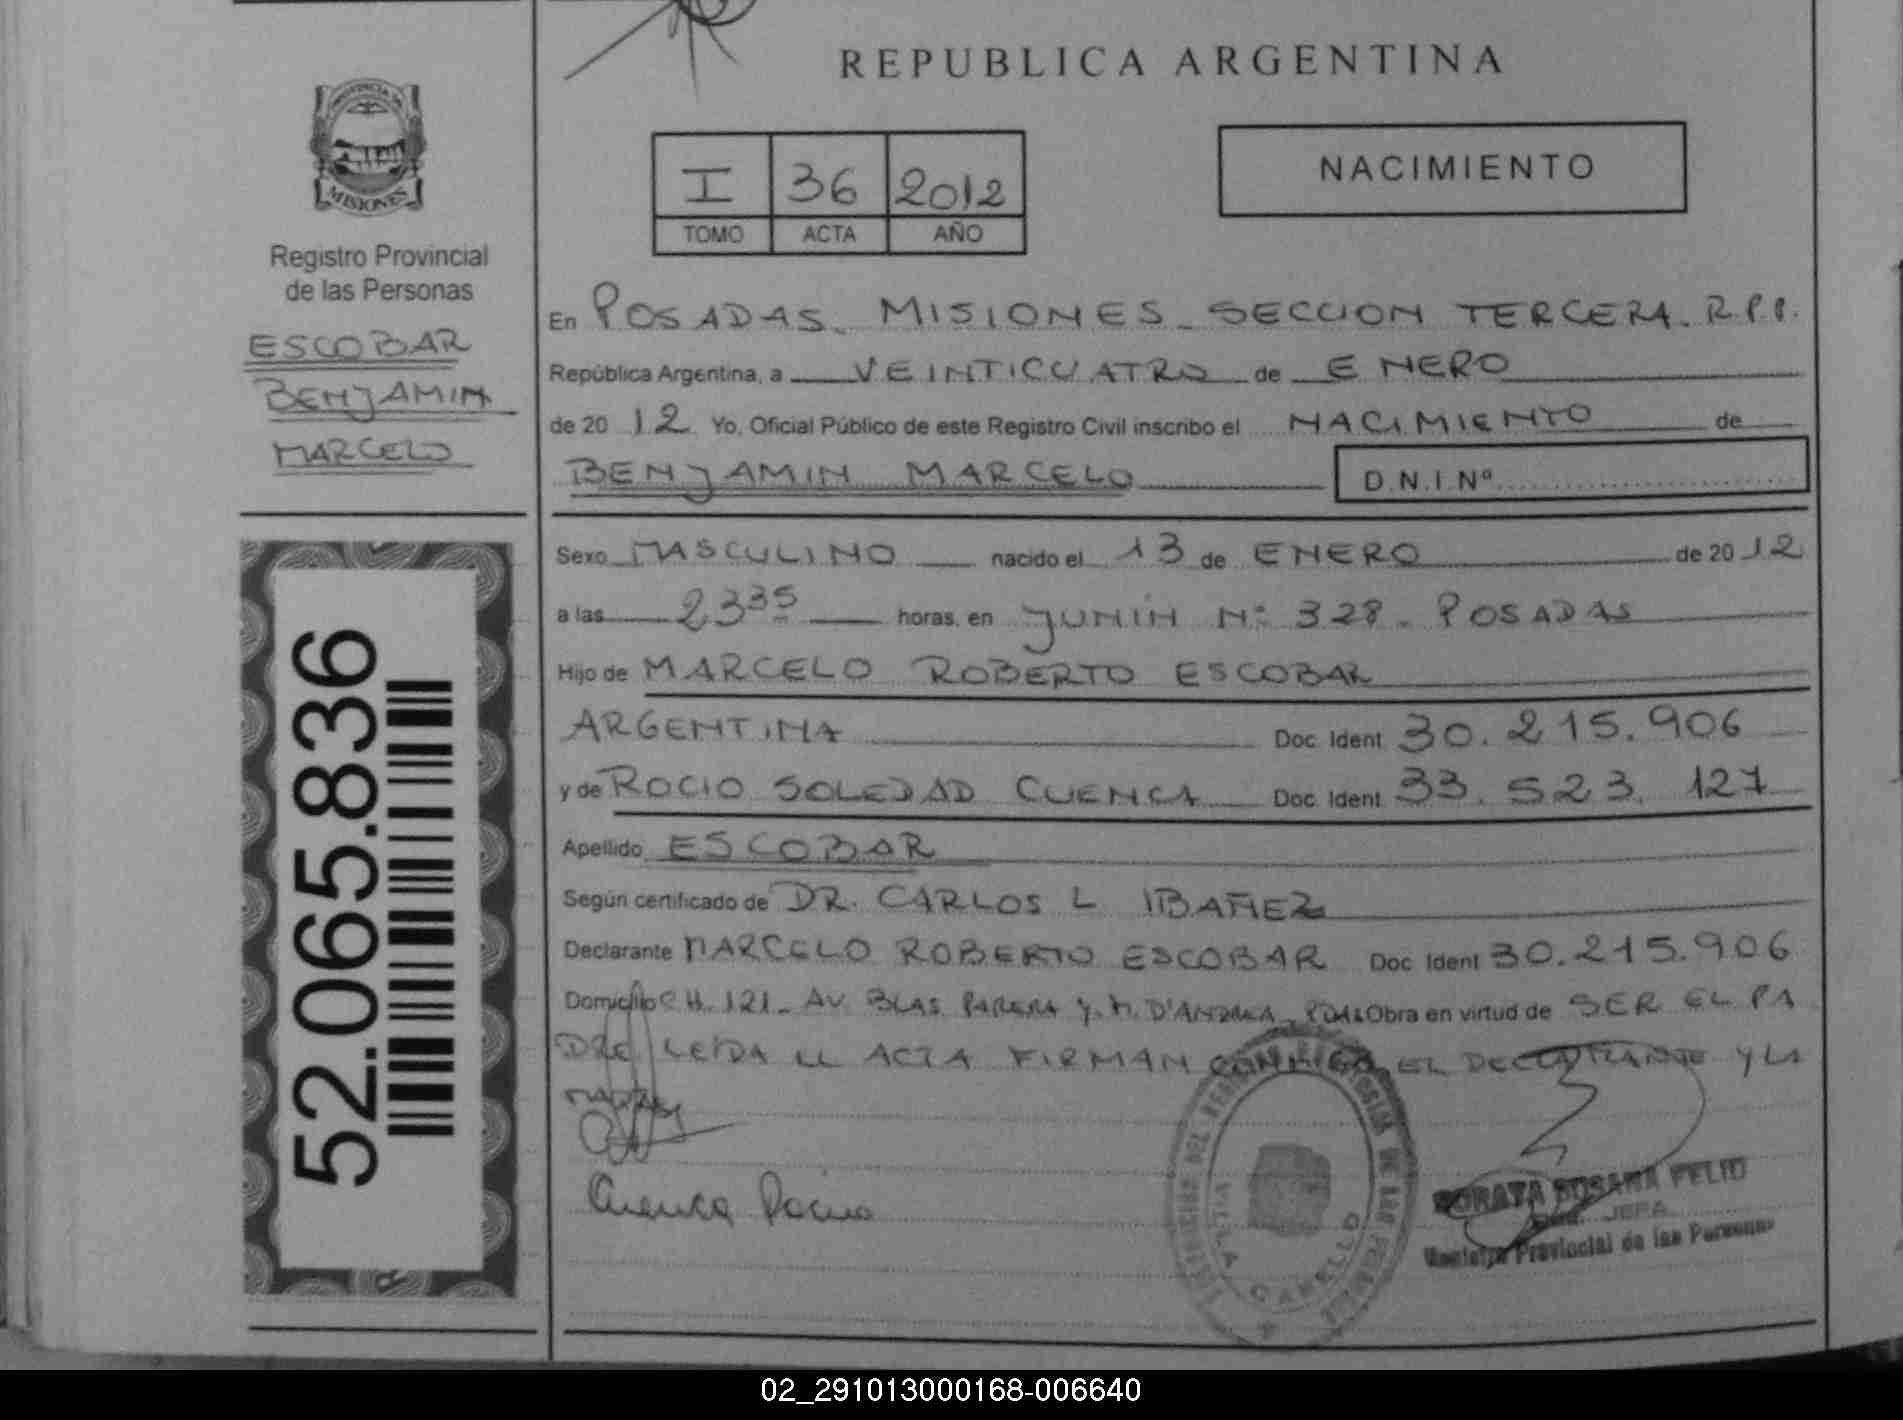 REPUBLICA ARGENTINA
PROVINCIA DE
MISIONES
Registro Provincial
de las Personas
ESCOBAR
BENJAMIN
MARCELO
52.065.836
I 36 2012
TOMO ACTA AÑO
NACIMIENTO
En POSADAS. MISIONES. SECCION TERCERA. R.P.P.
República Argentina, a VEINTICUATRO de ENERO
de 2012 Yo, Oficial Público de este Registro Civil inscribo el NACIMIENTO de
BENJAMIN MARCELO D.N.I.Nº
Sexo MASCULINO nacido el 13 de ENERO de 2012
a las 23 35 horas, en JUNIN Nº 328 - POSADAS
Hijo de MARCELO ROBERTO ESCOBAR
ARGENTINA Doc. Ident. 30.215.906
y de ROCIO SOLEDAD CUENCA Doc. Ident. 33.523.127
Apellido ESCOBAR
Según certificado de DR. CARLOS L IBAÑEZ
Declarante MARCELO ROBERTO ESCOBAR Doc. Ident 30.215.906
Domicilio CH. 121 - AV. BLAS PARERA Y. M. D'ANDREA Obra en virtud de SER EL PA
DRE. LEIDA EL ACTA FIRMAN CONMIGO EL DECLARANTE Y LA
MADRE
Cuenca Rocio
VILLA CABELLO
SORAYA SUSANA FELIU
JEFA
Registro Provincial de las Personas
02_291013000168-006640